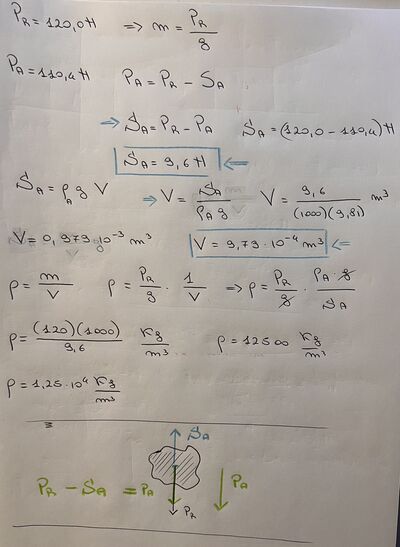 P_R = 120,0 N => m = P_R / g
P_A = 110,4 N P_A = P_R - S_A
=> S_A = P_R - P_A S_A = (120,0 - 110,4) N
S_A = 9,6 N <=
S_A = ρ_A g V => V = S_A / ρ_A g V = 9,6 / (1000)(9,81) m³
V = 0,979 · 10⁻³ m³ V = 9,79 · 10⁻⁴ m³ <=
ρ = m / V ρ = P_R / g · 1 / V => ρ = P_R / g · ρ_A · g / S_A
ρ = (120)(1000) / 9,6 Kg / m³ ρ = 12500 Kg / m³
ρ = 1,25 · 10⁴ Kg / m³
S_A
P_R - S_A = P_A P_A
P_R